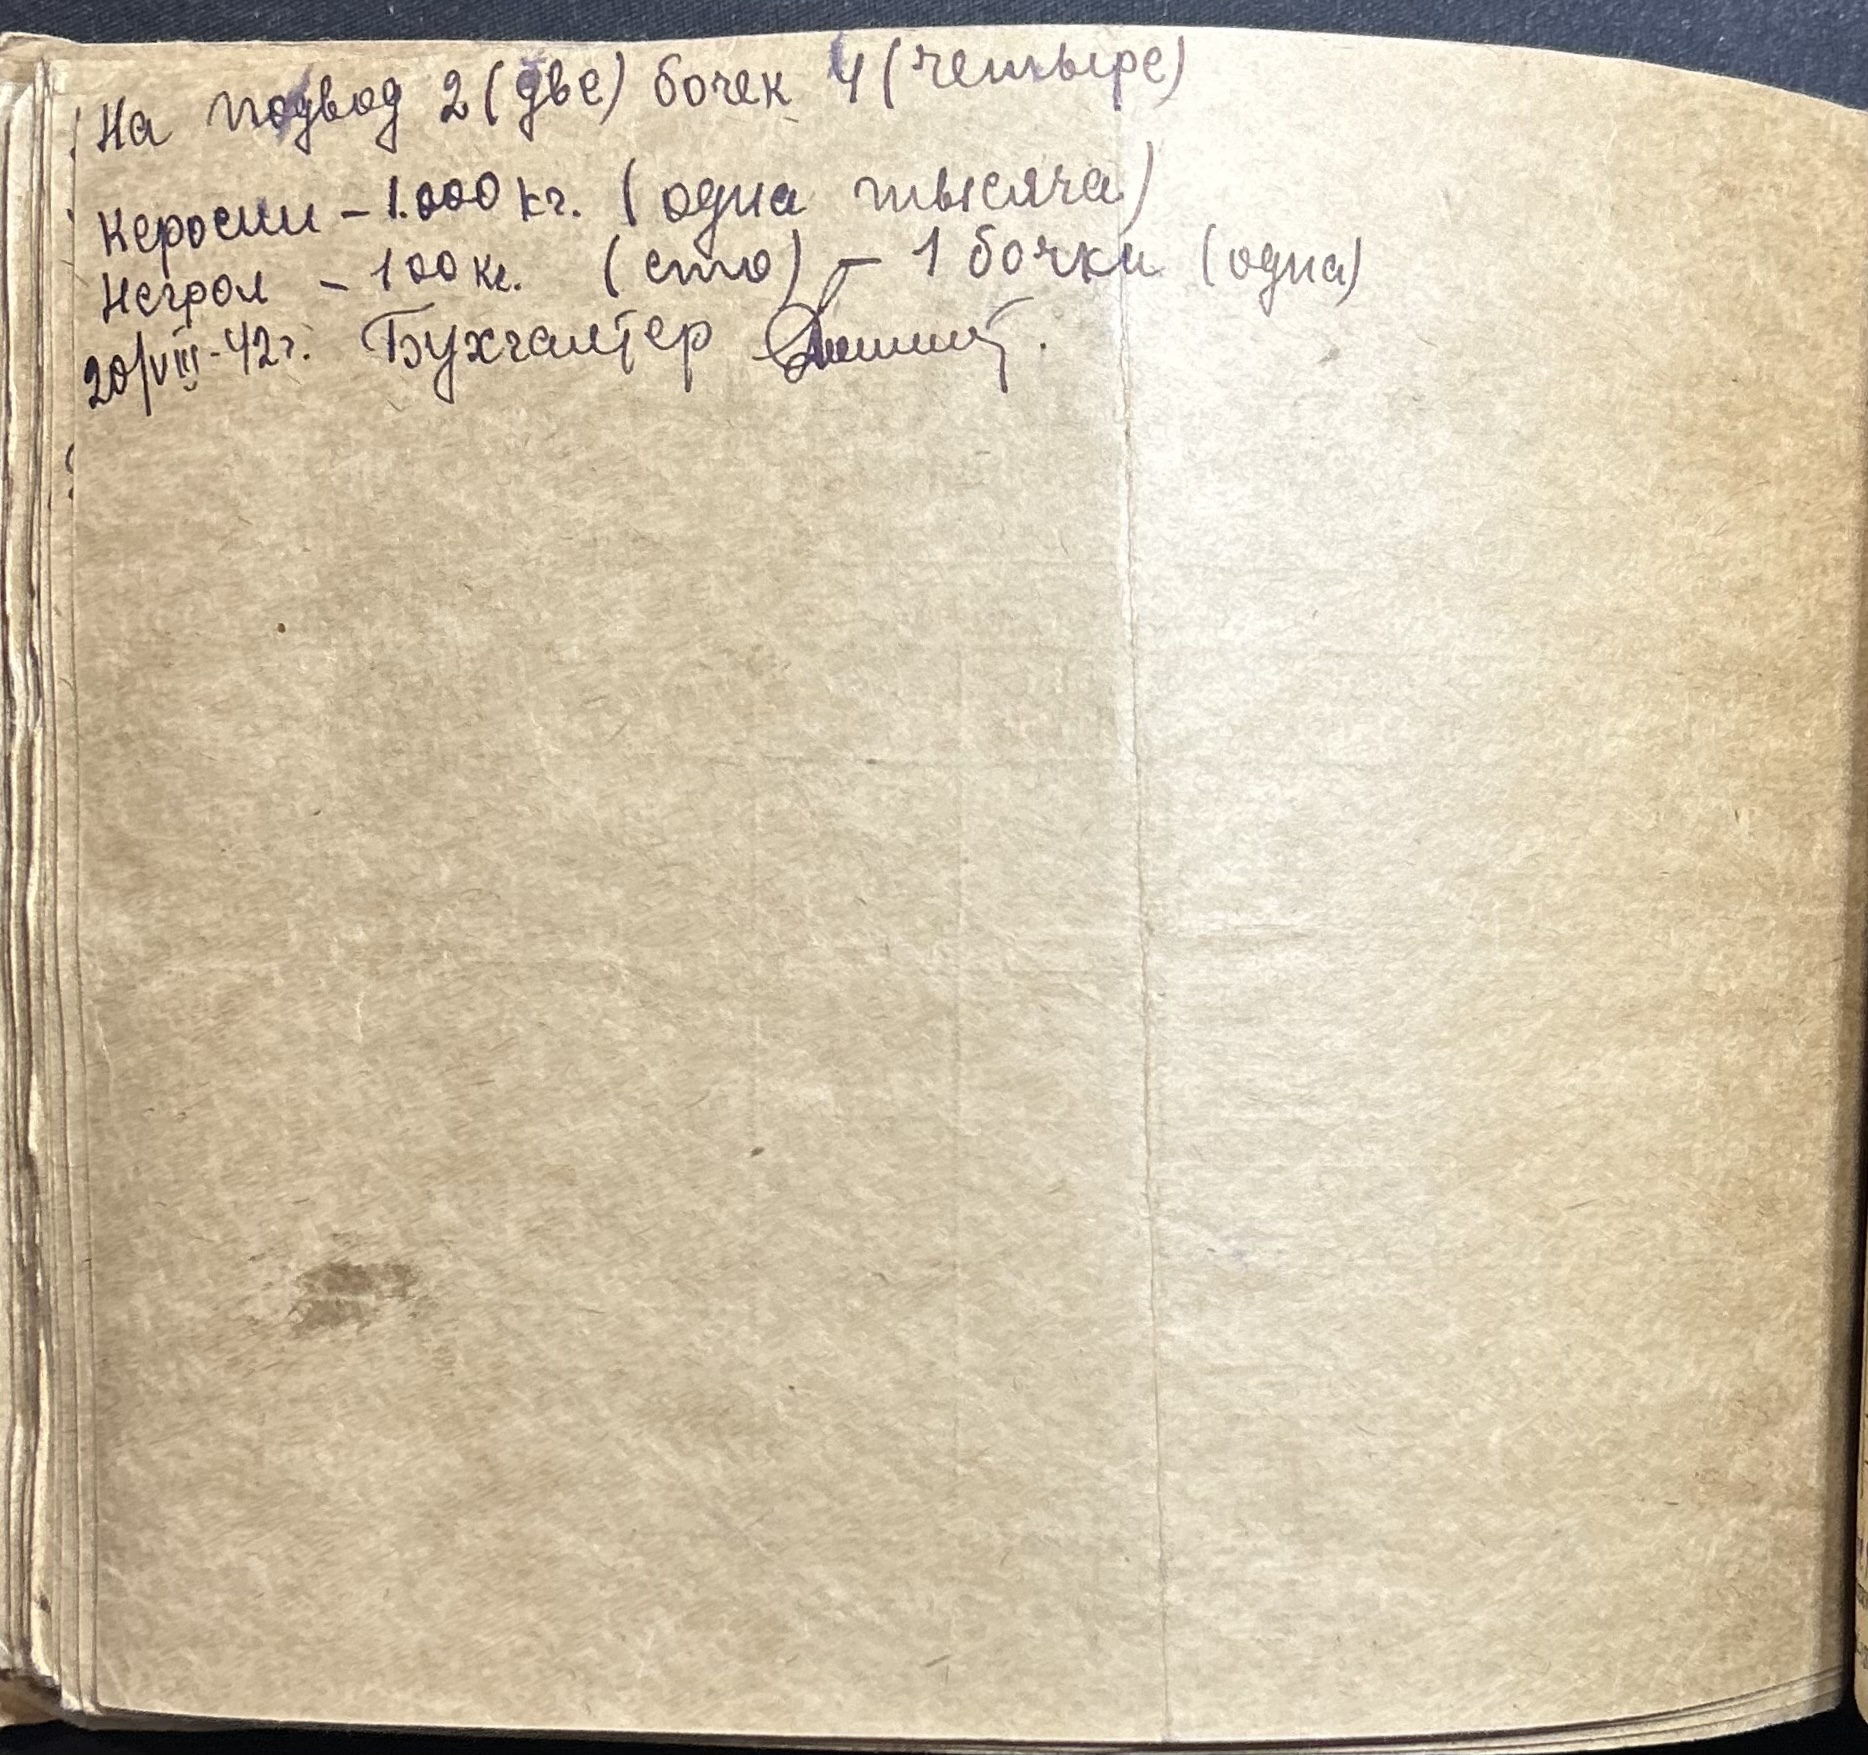 На подвод 2 (две) бочек 4 (четыре)
Керосин – 1.000 кг. (одна тысяча)
Негрол – 100 кг. (сто) – 1 бочки (одна)
20/VIII-42 г. Бухгалтер